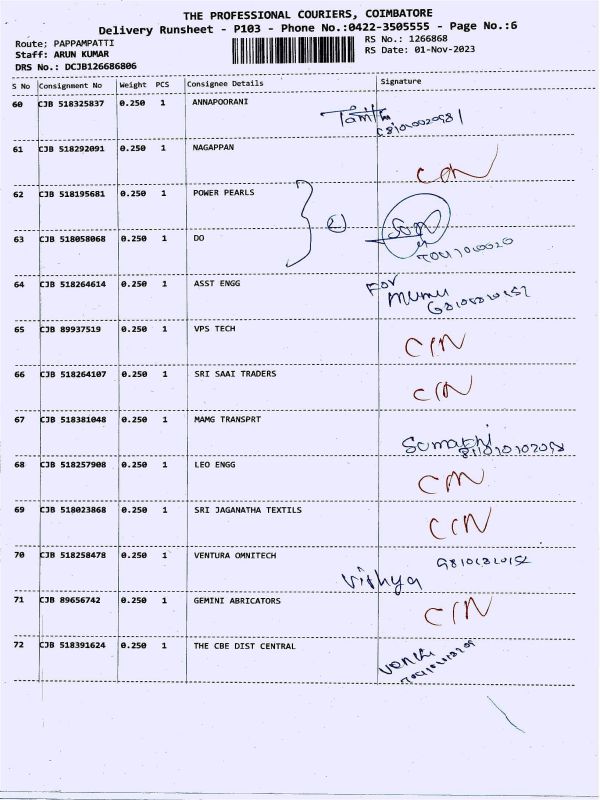 THE PROFESSIONAL COURIERS, COIMBATORE
Delivery Runsheet - P103 - Phone No.:0422-3505555 - Page No.:6
Route; PAPPAMPATTI
RS No.: 1266868
Staff: ARUN KUMAR
RS Date: 01-Nov-2023
DRS No.: DCJB126686806
S No Consignment No Weight PCS Consignee Details Signature
60 CJB 518325837 0.250 1 ANNAPOORANI
61 CJB 518292091 0.250 1 NAGAPPAN
62 CJB 518195681 0.250 1 POWER PEARLS
63 CJB 518058068 0.250 1 DO
64 CJB 518264614 0.250 1 ASST ENGG For
65 CJB 89937519 0.250 1 VPS TECH
66 CJB 518264107 0.250 1 SRI SAAI TRADERS
67 CJB 518381048 0.250 1 MAMG TRANSPRT
Sumathi
68 CJB 518257908 0.250 1 LEO ENGG
69 CJB 518023868 0.250 1 SRI JAGANATHA TEXTILS
70 CJB 518258478 0.250 1 VENTURA OMNITECH
Vithya
71 CJB 89656742 0.250 1 GEMINI ABRICATORS
72 CJB 518391624 0.250 1 THE CBE DIST CENTRAL